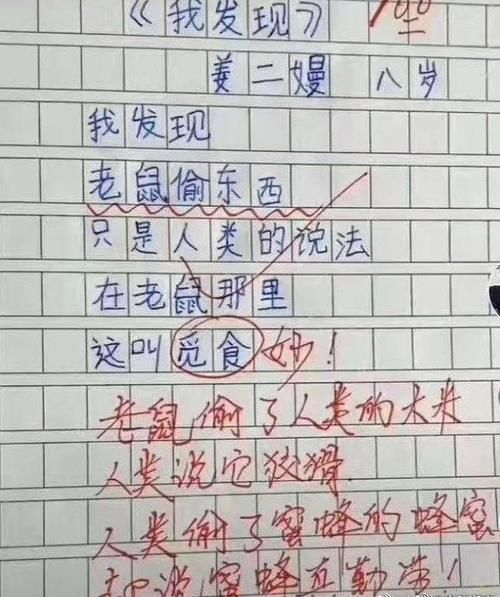 《我发现》 100
姜二嫚 八岁
我发现
老鼠偷东西
只是人类的说法
在老鼠那里
这叫觅食 妙！
老鼠偷了人类的大米
人类说它狡猾
人类偷了蜜蜂的蜂蜜
却说蜜蜂在勤劳！